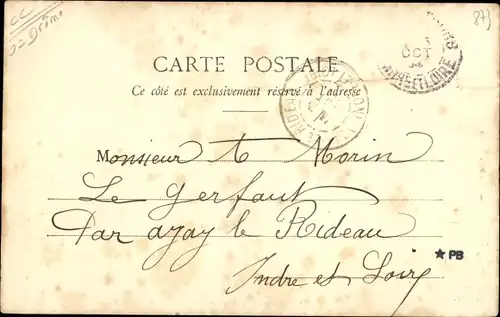 87)
CARTE POSTALE
Ce côté est exclusivement réservé à l'adresse
OCT
INDRE ET LOIRE
Monsieur A Morin
Le Gerfaut
Par azay le Rideau
Indre et Loire
★PB